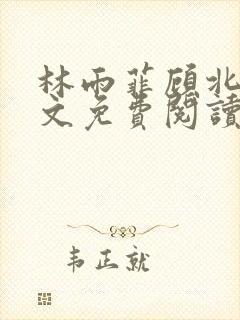 林雨霏顾北
文免费阅读
韦正就